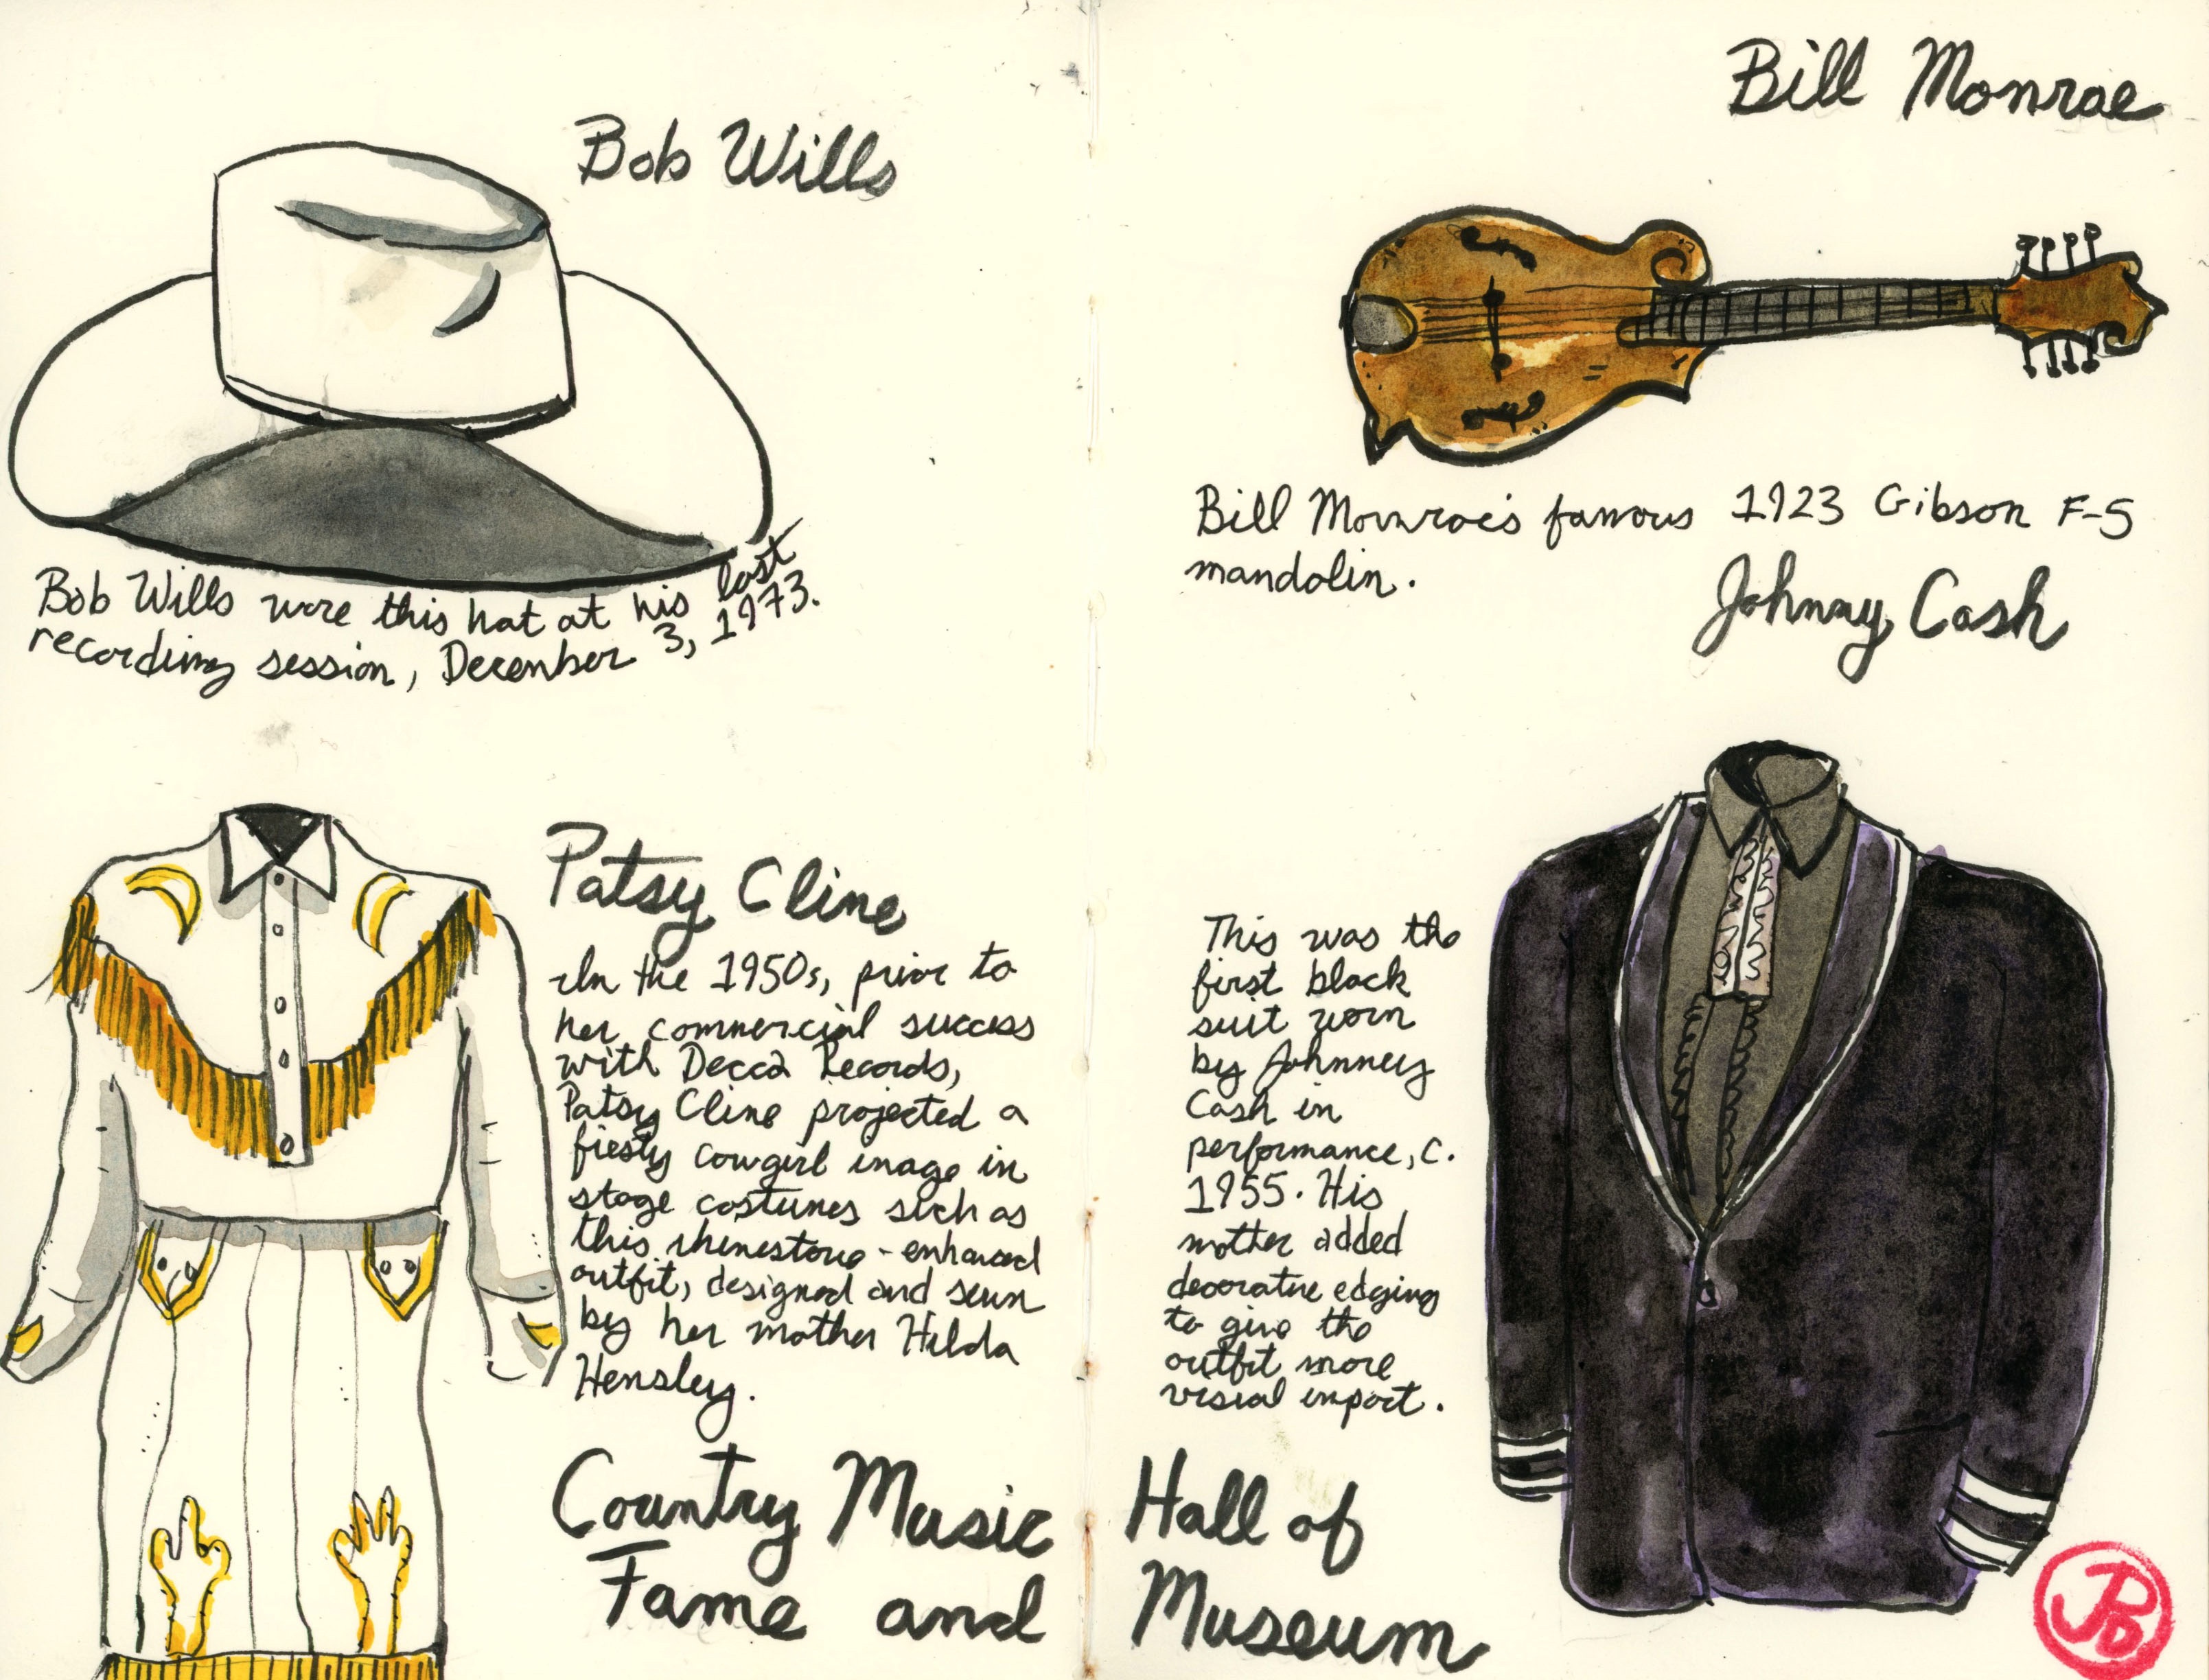 Bob Wills
Bob Wills wore this hat at his last
recording session, December 3, 1973.
Patsy Cline
In the 1950s, prior to
her commercial success
with Decca Records,
Patsy Cline projected a
fiesty cowgirl image in
stage costumes such as
this rhinestone-enhanced
outfit, designed and sewn
by her mother Hilda
Hensley.
Bill Monroe
Bill Monroe's famous 1923 Gibson F-5
mandolin.
Johnny Cash
This was the
first black
suit worn
by Johnney
Cash in
performance, c.
1955. His
mother added
decorative edging
to give the
outfit more
visual import.
Country Music Hall of
Fame and Museum
JPD